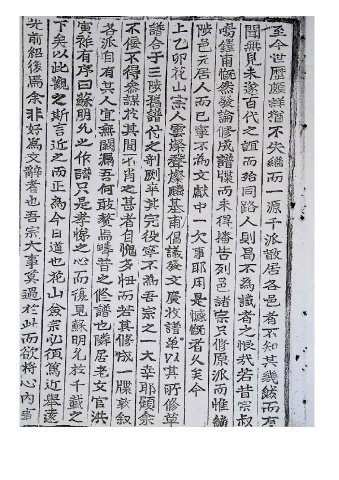 至今世歷頗詳猶不失繼而一源千派散居各邑者不知其幾然而有
聞無見未遂百代之誼而始同路人則曷不為識者之恨哉若昔宗叔
鐸甫慨然發論修成譜牒而未得播告列邑諸宗只修原派而惟編
陟邑元居人而已寧不為文獻中一欠事耶用是慨者久矣今
上乙卯花山宗人燦聲燦麟基甫倡議發文廣收譜单以其所修草
譜合于三陟舊譜代之剞劂卒其完役寧不為吾宗之一大幸耶顧余
不佞不得參謀於其間不肖之甚者自愧多忸而若其修成一牒敘
各派自有其人宜無闕漏吾何敢贅焉疇昔之修譜也隣居老文官洪
寅裕有序曰蘇明允之作譜只是孝悌之心而後見蘇明允於千載之
下矣以此觀之斯言近之而正為今日道也花山僉宗須篤近舉遠
光前紹後焉余非好為文辭者也吾宗大事莫過於此而欲將心內事